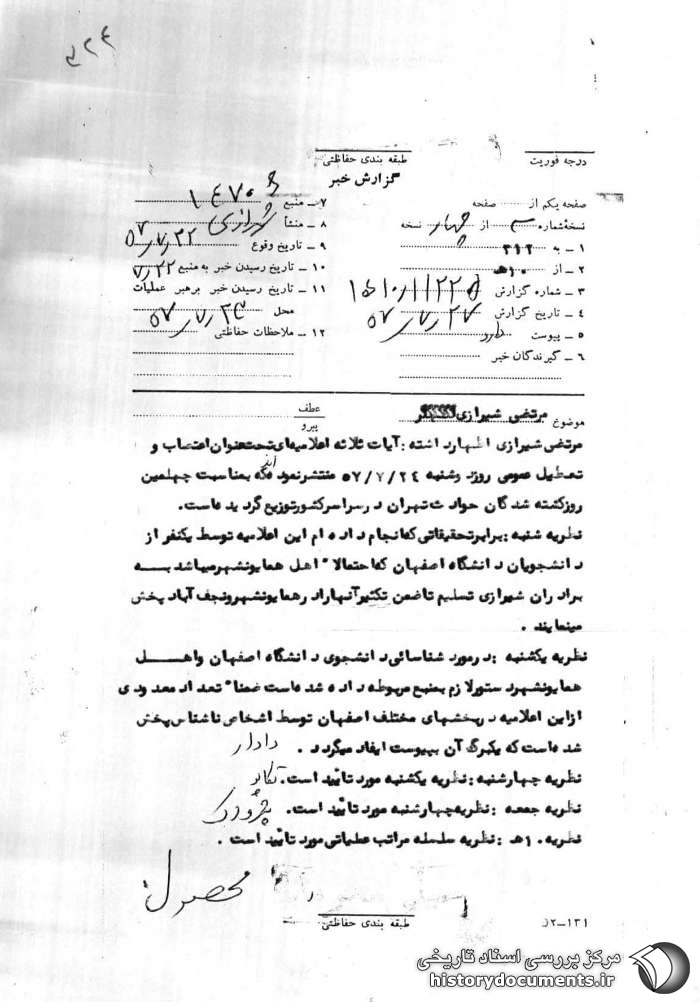 درجه فوریت
طبقه بندی حفاظتی
گزارش خبر
صفحه یکم از صفحه
نسخه شماره از چهار نسخه
۱ ـ به ۳۱۲
۲ ـ از ۱۰هـ
۳ ـ شماره گزارش
۴ ـ تاریخ گزارش ۵۷/۷/۲۷
۵ ـ پیوست دارد
۶ ـ گیرندگان خبر
۷ ـ منبع ۱۴۷۰
۸ ـ منشأ شیرازی
۹ ـ تاریخ وقوع ۵۷/۷/۲۲
۱۰ ـ تاریخ رسیدن خبر به منبع ۷/۲۲
۱۱ ـ تاریخ رسیدن خبر برهبر عملیات
محل ۵۷/۷/۲۳
۱۲ ـ ملاحظات حفاظتی
موضوع مرتضی شیرازی
عطف
پیرو
مرتضی شیرازی اظهارداشته : آیات ثلاثه اعلامیه‌ای تحت عنوان اعتصاب و
تعطیل عمومی روز دوشنبه ۵۷/۷/۲۴ منتشر نموده‌اند که بمناسبت چهلمین
روز کشته شدگان حوادث تهران در سراسر کشور توزیع گردیده‌است.
نظریه شنبه : برابر تحقیقاتی که انجام داده ام این اعلامیه توسط یکنفر از
دانشجویان دانشگاه اصفهان که احتمالا" اهل همایونشهر میباشد بـه
برادران شیرازی تسلیم تا ضمن تکثیر آنها را در همایونشهر و نجف آباد پخش
مینمایند .
نظریه یکشنبه : در مورد شناسائی دانشجوی دانشگاه اصفهان و اهـل
همایونشهر دستور لازم بمنبع مربوطه داده شده‌است ضمنا" تعداد معدودی
از این اعلامیه در بخشهای مختلف اصفهان توسط اشخاص ناشناس پخش
شده‌است که یکبرگ آن بپیوست ایفاد میگردد . دادار
نظریه چهارشنبه : نظریه یکشنبه مورد تائید است.
نظریه جمعه : نظریه چهارشنبه مورد تائید است.
نظریه ۱۰هـ : نظریه سلسله مراتب عملیاتی مورد تائید است .
محصول
طبقه بندی حفاظتی
۱۳۱ـ۲
مرکز بررسی اسناد تاریخی
historydocuments.ir